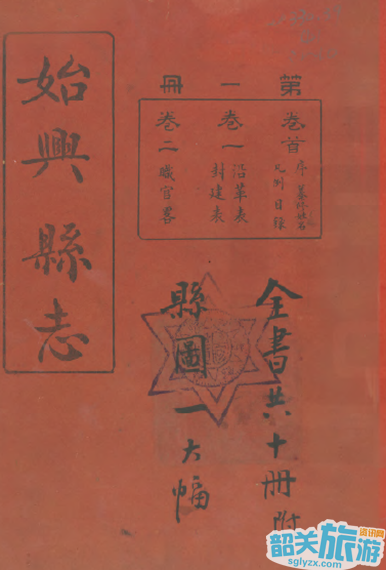 始興縣志
第一冊
卷首
序 纂修姓名
凡例 目錄
卷一
沿革表
封建表
卷二
職官畧
全書共十冊附
縣圖一大幅
韶关旅游
资讯网
sglyzx.com